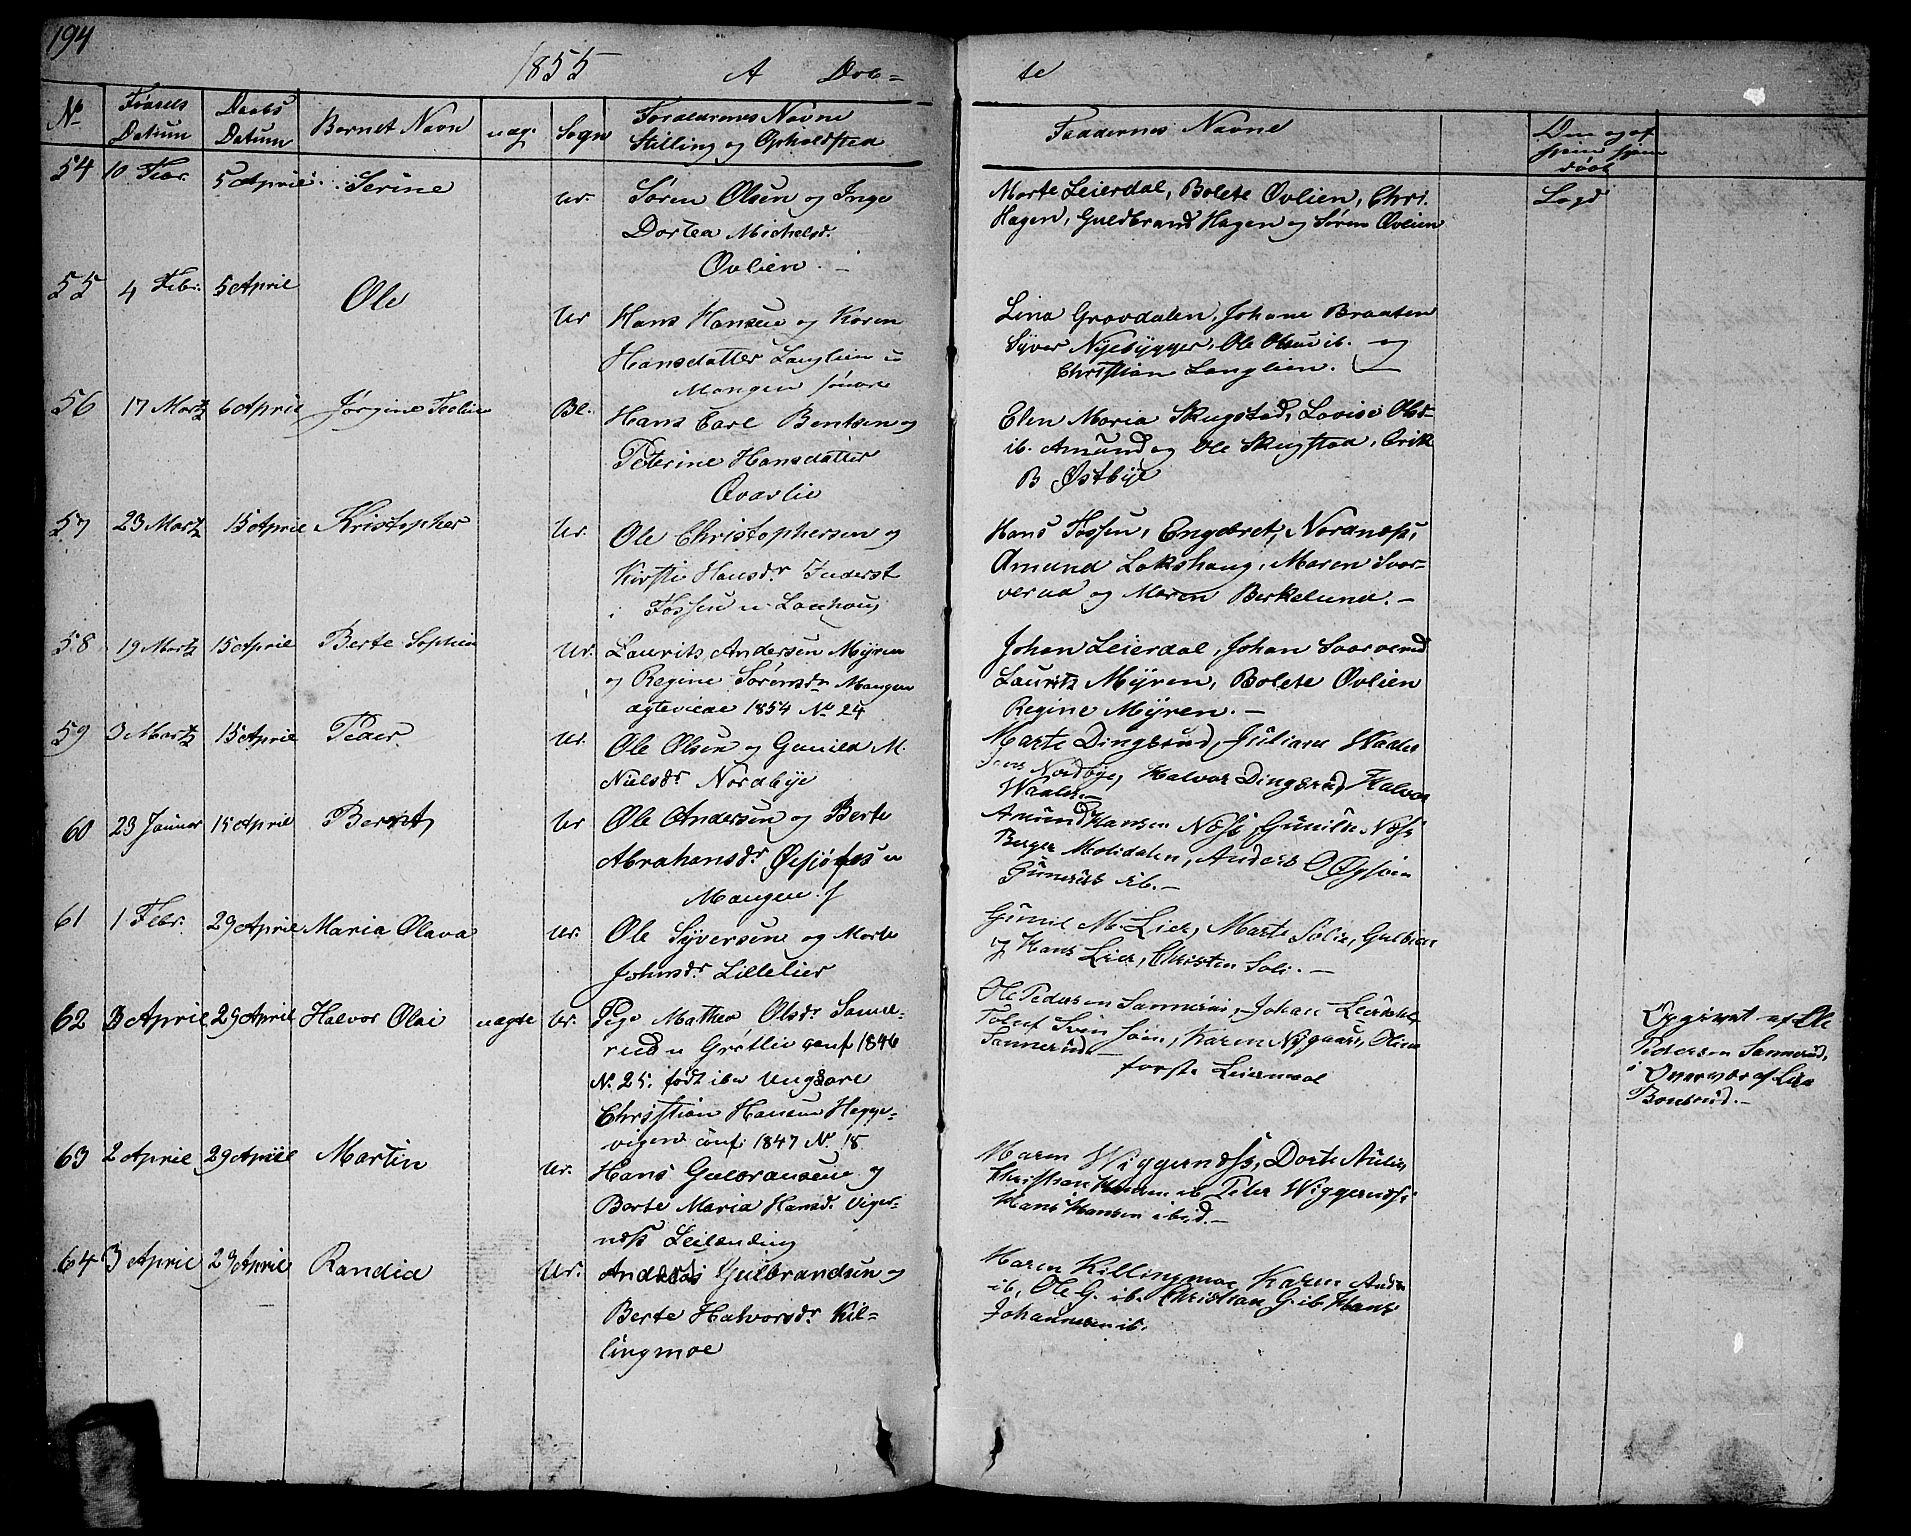 194
1855 A Døb= te
No Fødsels Datum Daabs Datum Barnet Navn uægt Sogn Forældrernes Navne Stilling og Opholdsted Faddernes Navne Om og af hvem hjemdøbt
54 10 Febr. 5 April Serine Ur. Søren Olsen og Inge
Dortea Michelsd.
Ovlien. —
Marte Leierdal, Bolete Ovlien, Chri.
Hagen, Guldbrand Hagen og Søren Ovlien
55 4 Febr. 5 April Ole Ur Hans Hansen og Karen
Hansdatter Langlien u
Mangen
Lina Gravdalen, Johane Braaten
Syver Nyebygger, Ole Olsen ib. og
Christian Langlien. —
56 17 Martz 6 April Jørgine Bl. Hans Carl Bentsen og
Peterine Hansdatter
Qvaslie
Elen Maria Skugstad, Lovise Olsd
ib. Amund og Ole Skugstad, Erik
B Østbye
57 23 Martz 15 April Kristopher Ur. Ole Christophersen og
Kirsti Hansdr. Inderst
i Fossen u
Hans Fossen, Engebret Nordnes,
Amund Lokshaug, Maren Svar-
verud og Maren Berkelund. —
58 19 Martz 15 April Berte Sophie Ur. Laurits Andersen Myren
og Regine Sørensdr Mangen
ægteviede 1854 No 24
Johan Leierdal, Johan Svarverud
Laurits Myren, Bolete Ovlien
Regine Myren. —
59 3 Martz 15 April Peder Ur. Ole Olsen og Gunild M.
Nielsdr Nordbye
Marte Dingsrud, Juliane Waaler
Jens Nordbye, Halvor Dingsrud, Halvor
Waaler —
60 23 Januar 15 April Bernt Ur Ole Andersen og Berte
Abrahamsdr. u
Mangen
Amund Hansen Næss, Gunild Næss
Berger Molidalen, Anders
Gunerius ib. —
61 1 Febr. 29 April Maria Olava Ur. Ole Syversen og Marte
Johnsdr. Lillelier
Gunil M. Lier, Marte Solie,
og Hans Lier, Christen Soli. —
62 3 April 29 April Halvor Olai uægte Ur. Pige Mathea Olsdr Sanne-
rud u Grøtlie conf 1846
No. 25. født ibd Ungkare
Christian Hansen Hegge-
vigen conf. 1847 No. 18
Ole Pedersen Sannerud, Johan
Karen Nygaard,
Sannerud —
første Leiermaal
Opgivet af Ole
Pedersen Sannerud,
i Overvær af Lisa
63 2 April 29 April Martin Ur. Hans Gulbransen og
Berte Maria Hansd. Viger-
næss Leilænding
Maren Wiggernæss, Dorte Aulie,
Christian Hansen ib Peter Wiggernæss
Hans Hansen ibid. —
64 3 April 29 April Randia Ur. Anders Gulbrandsen og
Berte Halvorsdr. Kil=
lingmoe
Maren Killingmoe, Karen
ib, Ole G. ib. Christian G. ib Hans
Johannesen ib.